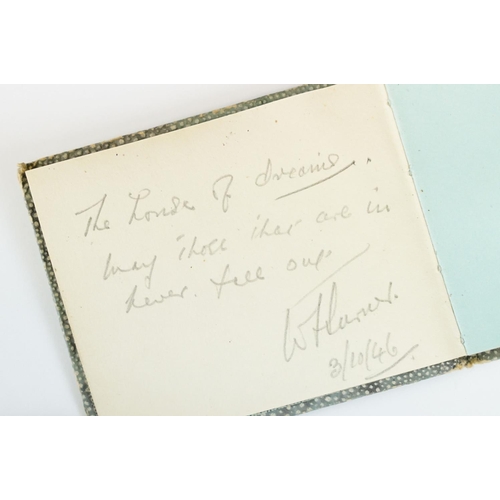 The House of dreams.
May those that are in
never fall out
3/10/46